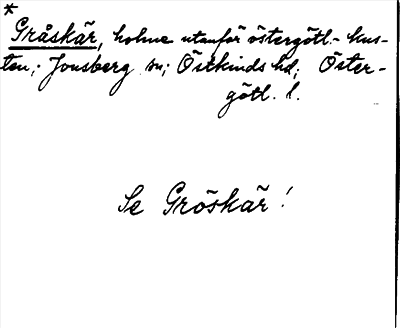 *
Gråskär, holme utanför östergötl.- kus-
ten; Jonsberg sn; Östkinds hd; Öster-
götl. l.
Se Gröskär!